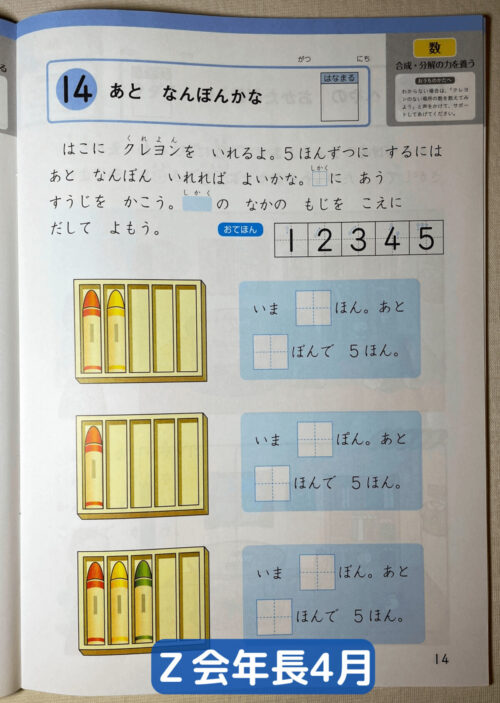 がつ にち
数
合成・分解の力を養う
おうちのかたへ
わからない場合は、「クレヨ
ンのない場所の数を数えてみ
よう」と声をかけて、サポー
トしてあげてください。
はなまる
14 あと なんぼんかな
くれよん
はこに クレヨンを いれるよ。5ほんずつに するには
しかく
あと なんぼん いれれば よいかな。 に あう
しかく
すうじを かこう。 の なかの もじを こえに
だして よもう。
おてほん 1 2 3 4 5
いま ほん。あと
ぼんで 5ほん。
いま ぽん。あと
ほんで 5ほん。
いま ぼん。あと
ほんで 5ほん。
Z会年長4月
14